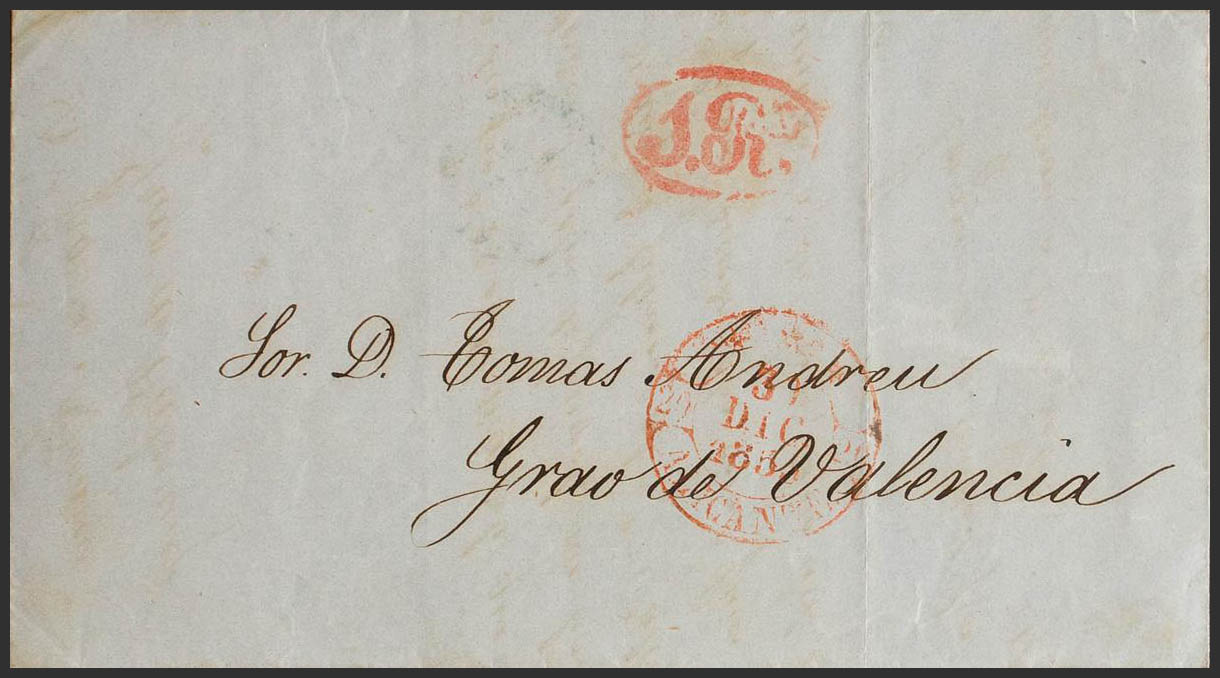 1.R.
Sor. D. Tomas Andreu
Grao de Valencia
DIC
ALICANTE